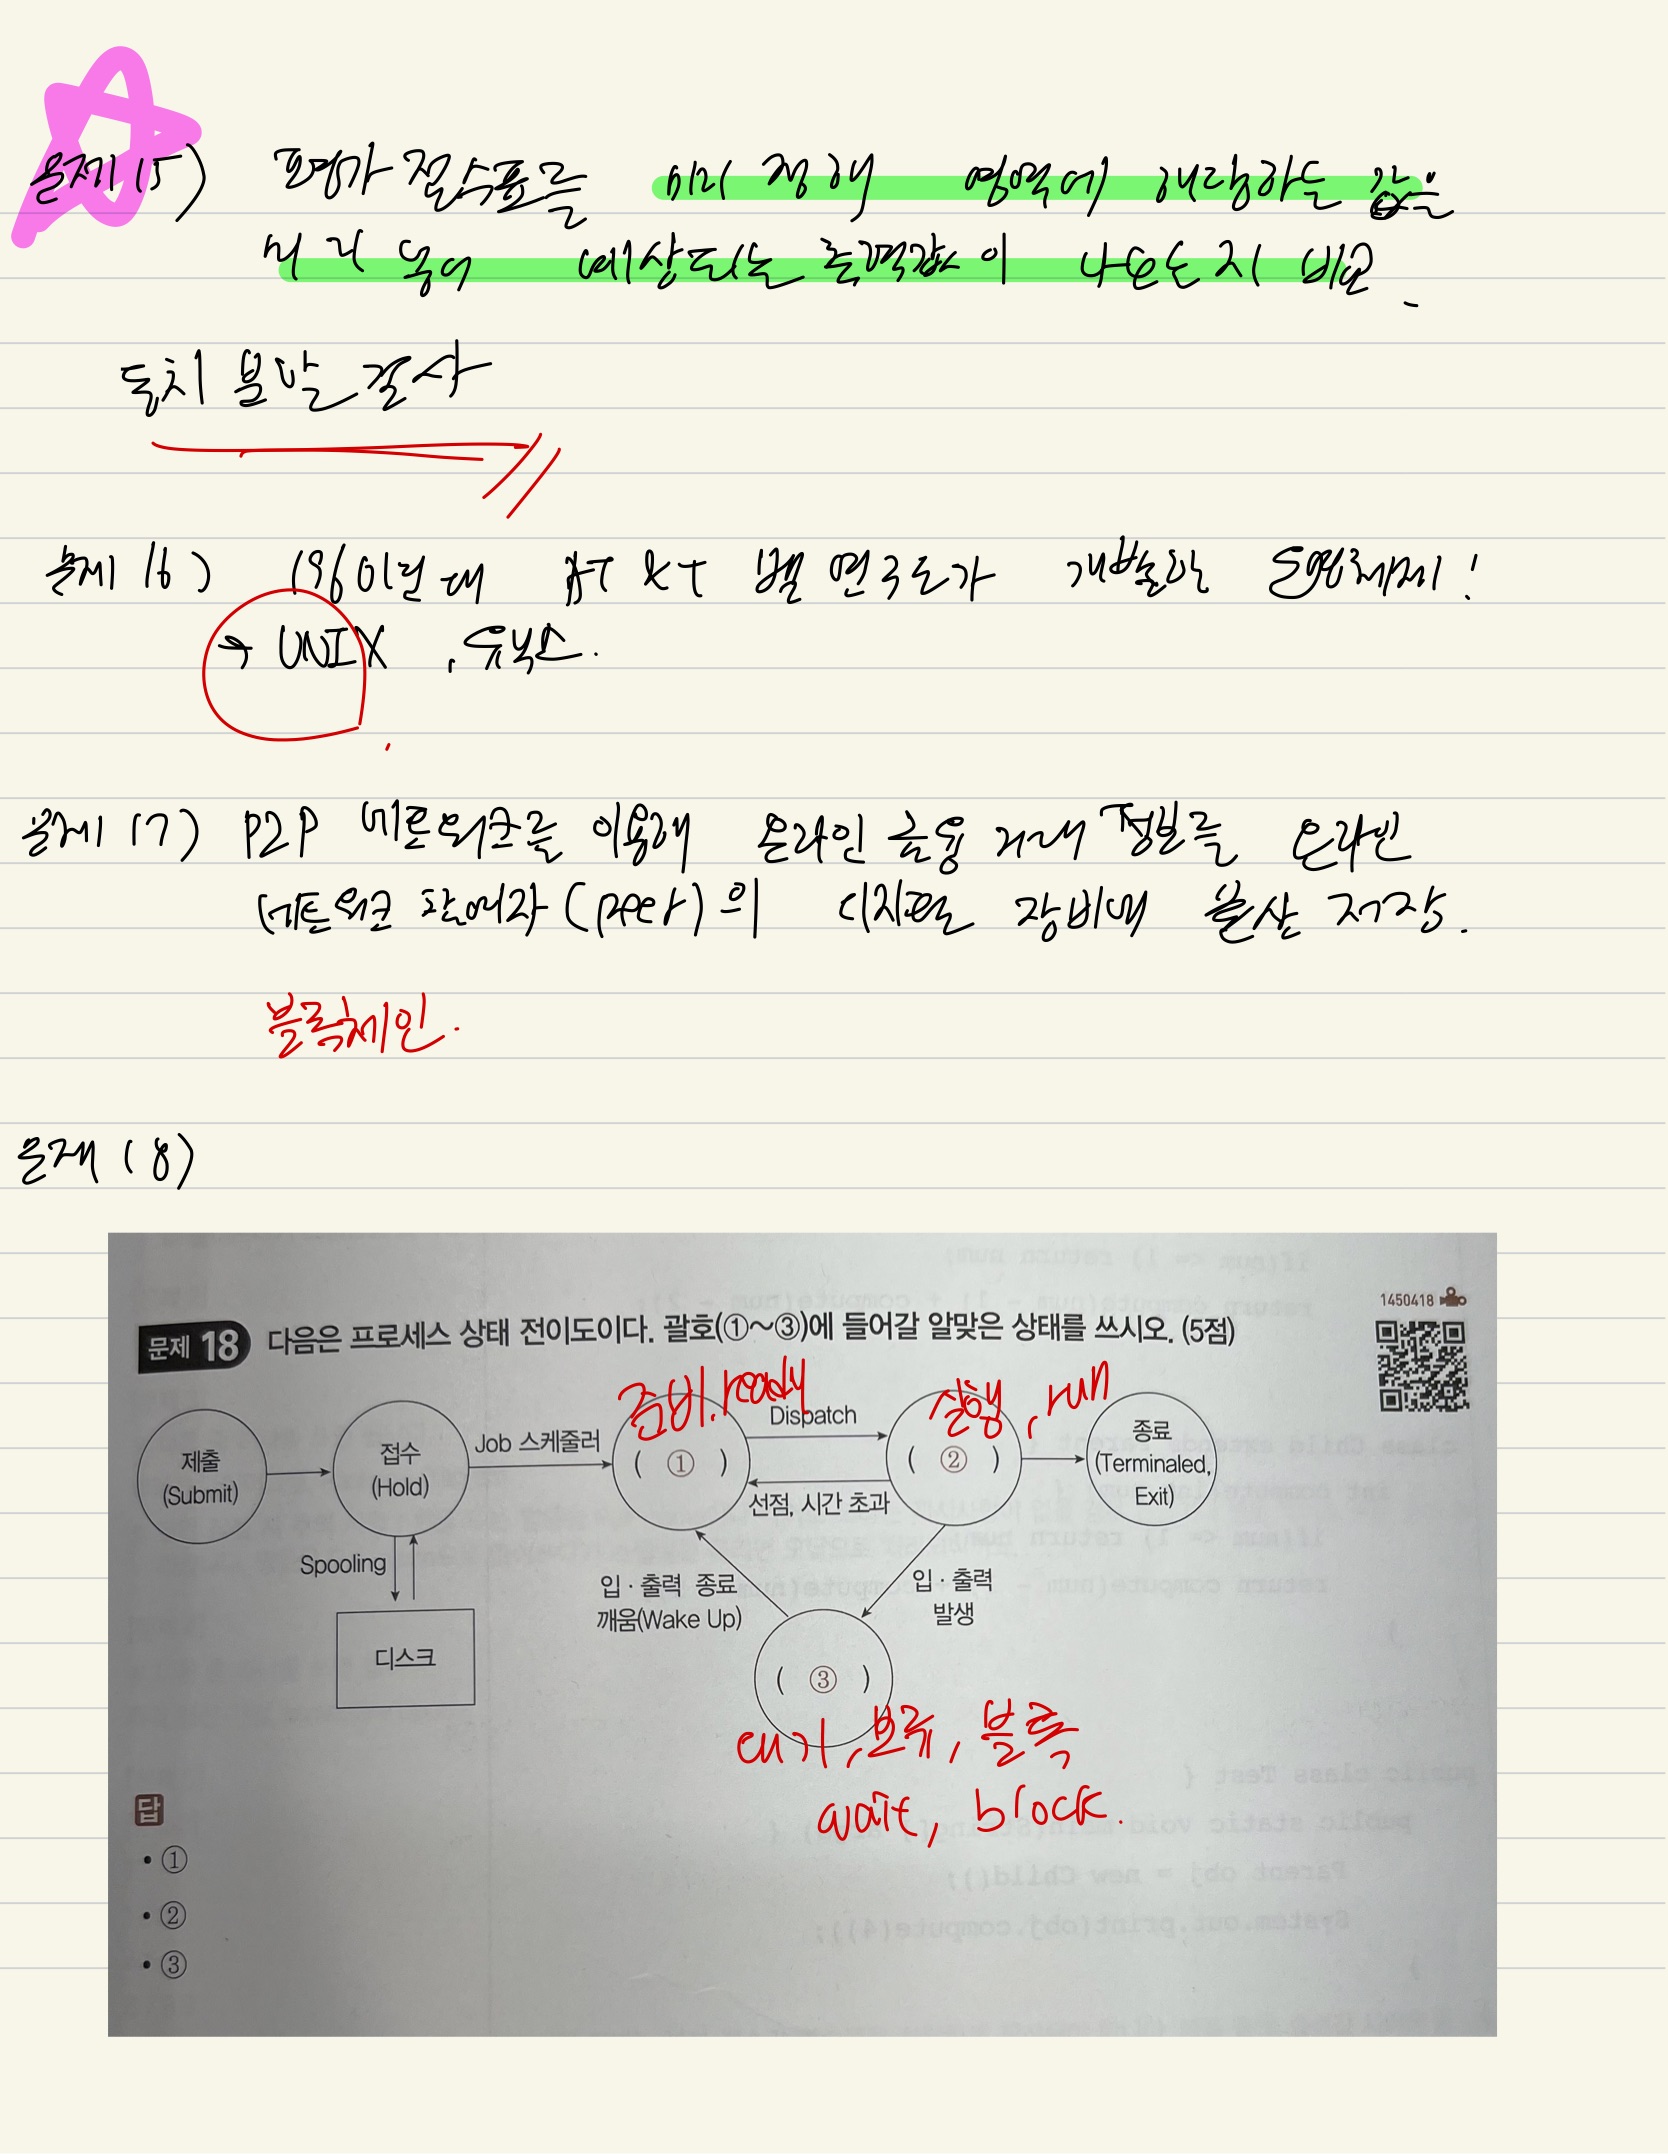 문제 15) 평가 점수표를 미리 정해 영역에 해당하는 값을
넣어 예상되는 출력값이 나오는지 비교.
동치 분할 검사
문제 16) 1960년대 AT&T 벨 연구소가 개발한 운영체제!
→ UNIX , 유닉스.
문제 17) P2P 네트워크를 이용해 온라인 금융 거래 정보를 온라인
네트워크 참여자(peer)의 디지털 장비에 분산 저장.
블록체인.
문제 18)
1450418
문제 18 다음은 프로세스 상태 전이도이다. 괄호(①~③)에 들어갈 알맞은 상태를 쓰시오. (5점)
준비, ready
실행, run
제출
(Submit)
접수
(Hold)
Job 스케줄러
( ① )
Dispatch
선점, 시간 초과
( ② )
종료
(Terminaled,
Exit)
Spooling
디스크
입·출력 종료
깨움(Wake Up)
입·출력
발생
( ③ )
대기, 보류, 블록
wait, block.
답
• ①
• ②
• ③